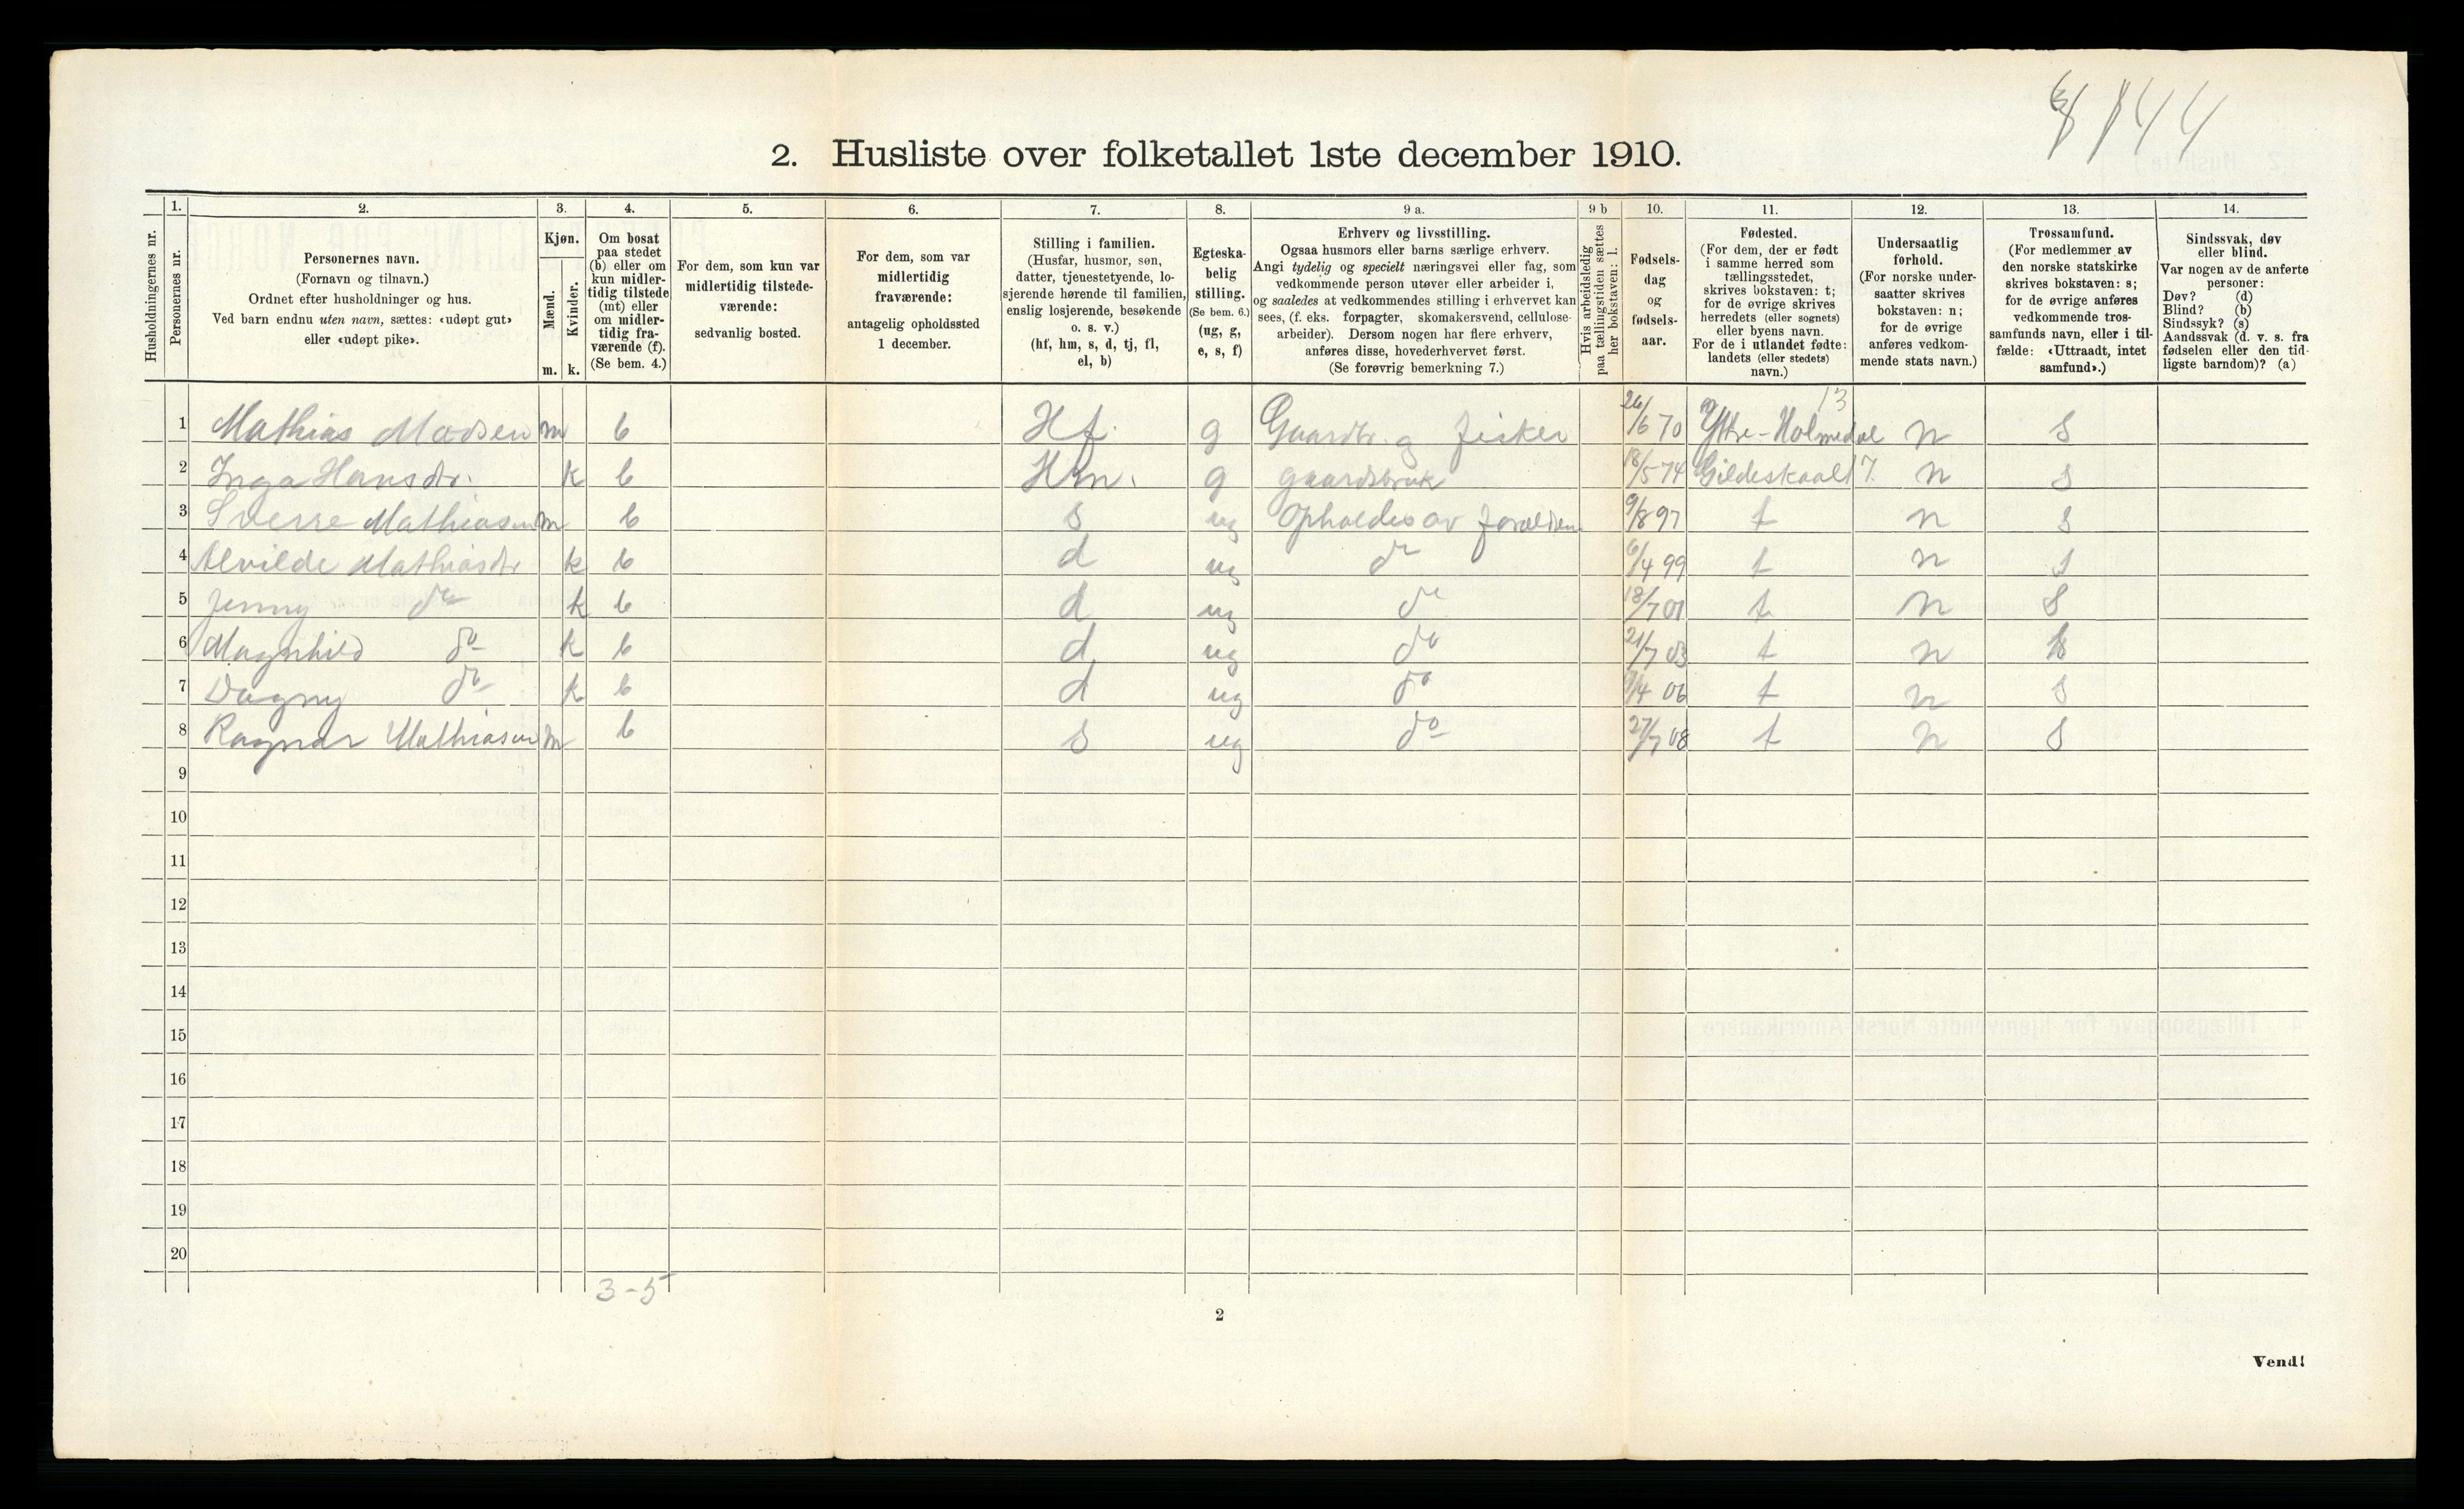 144
2. Husliste over folketallet 1ste december 1910.
Husholdningernes nr.
1.
Personernes nr.
2.
Personernes navn.
(Fornavn og tilnavn.)
Ordnet efter husholdninger og hus.
Ved barn endnu uten navn, sættes: «udøpt gut»
eller «udøpt pike».
3.
Kjøn.
Mænd.
Kvinder.
m. k.
4.
Om bosat
paa stedet
(b) eller om
kun midler-
tidig tilstede
(mt) eller
om midler-
tidig fra-
værende (f).
(Se bem. 4.)
5.
For dem, som kun var
midlertidig tilstede-
værende:
sedvanlig bosted.
6.
For dem, som var
midlertidig
fraværende:
antagelig opholdssted
1 december.
7.
Stilling i familien.
(Husfar, husmor, søn,
datter, tjenestetyende, lo-
sjerende hørende til familien,
enslig losjerende, besøkende
o. s. v.)
(hf, hm, s, d, tj, fl,
el, b)
8.
Egteska-
belig
stilling.
(Se bem. 6.)
(ug, g,
e, s, f)
9 a.
Erhverv og livsstilling.
Ogsaa husmors eller barns særlige erhverv.
Angi tydelig og specielt næringsvei eller fag, som
vedkommende person utøver eller arbeider i,
og saaledes at vedkommendes stilling i erhvervet kan
sees, (f. eks. forpagter, skomakersvend, cellulose-
arbeider). Dersom nogen har flere erhverv,
anføres disse, hovederhvervet først.
(Se forøvrig bemerkning 7.)
9 b
Hvis arbeidsledig
paa tællingstiden sættes
her bokstaven: l.
10.
Fødsels-
dag
og
fødsels-
aar.
11.
Fødested.
(For dem, der er født
i samme herred som
tællingsstedet,
skrives bokstaven: t;
for de øvrige skrives
herredets (eller sognets)
eller byens navn.
For de i utlandet fødte:
landets (eller stedets)
navn.)
12.
Undersaatlig
forhold.
(For norske under-
saatter skrives
bokstaven: n;
for de øvrige
anføres vedkom-
mende stats navn.)
13.
Trossamfund.
(For medlemmer av
den norske statskirke
skrives bokstaven: s;
for de øvrige anføres
vedkommende tros-
samfunds navn, eller i til-
fælde: «Uttraadt, intet
samfund».)
14.
Sindssvak, døv
eller blind.
Var nogen av de anførte
personer:
Døv? (d)
Blind? (b)
Sindssyk? (s)
Aandssvak (d. v. s. fra
fødselen eller den tid-
ligste barndom)? (a)
13
1 Mathias Madsen m b Hf. g Gaardbr. og fisker 26/6 70 Ytre-Holmedal n s
2 Inga Hansdr. k b Hm. g gaardsbruk 18/5 74 Gildeskaal 17. n s
3 Sverre Mathiasen m b s ug Opholdes av forældrene 9/8 97 t n s
4 Alvilde Mathiasdr k b d ug do 6/4 99 t n s
5 Jenny do k b d ug do 18/7 01 t n s
6 Magnhild do k b d ug do 21/7 03 t n s
7 Dagny do k b d ug do /4 06 t n s
8 Ragnar Mathiasen m b s ug do 27/7 08 t n s
9
10
11
12
13
14
15
16
17
18
19
20
3-5
2
Vend!